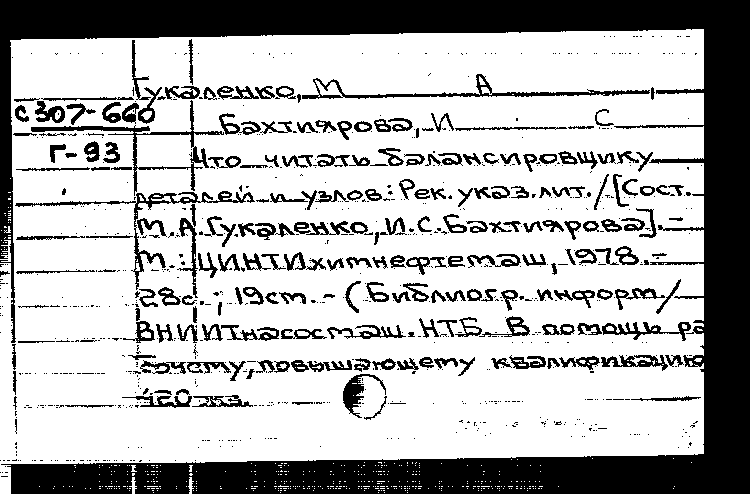 Гукаленко, М А
С307-660
Бахтиярова, И С
Г-93
Что читать балансировщику
деталей и узлов: Рек. указ. лит. / [Сост.
М.А. Гукаленко, И.С. Бахтиярова]. -
М.: ЦИНТИхимнефтемаш, 1978. -
28с.; 19см. - (Библиогр. информ /
ВНИИТнасосмаш. НТБ. В помощь ра
бочему, повышающему квалификацию
420 экз.